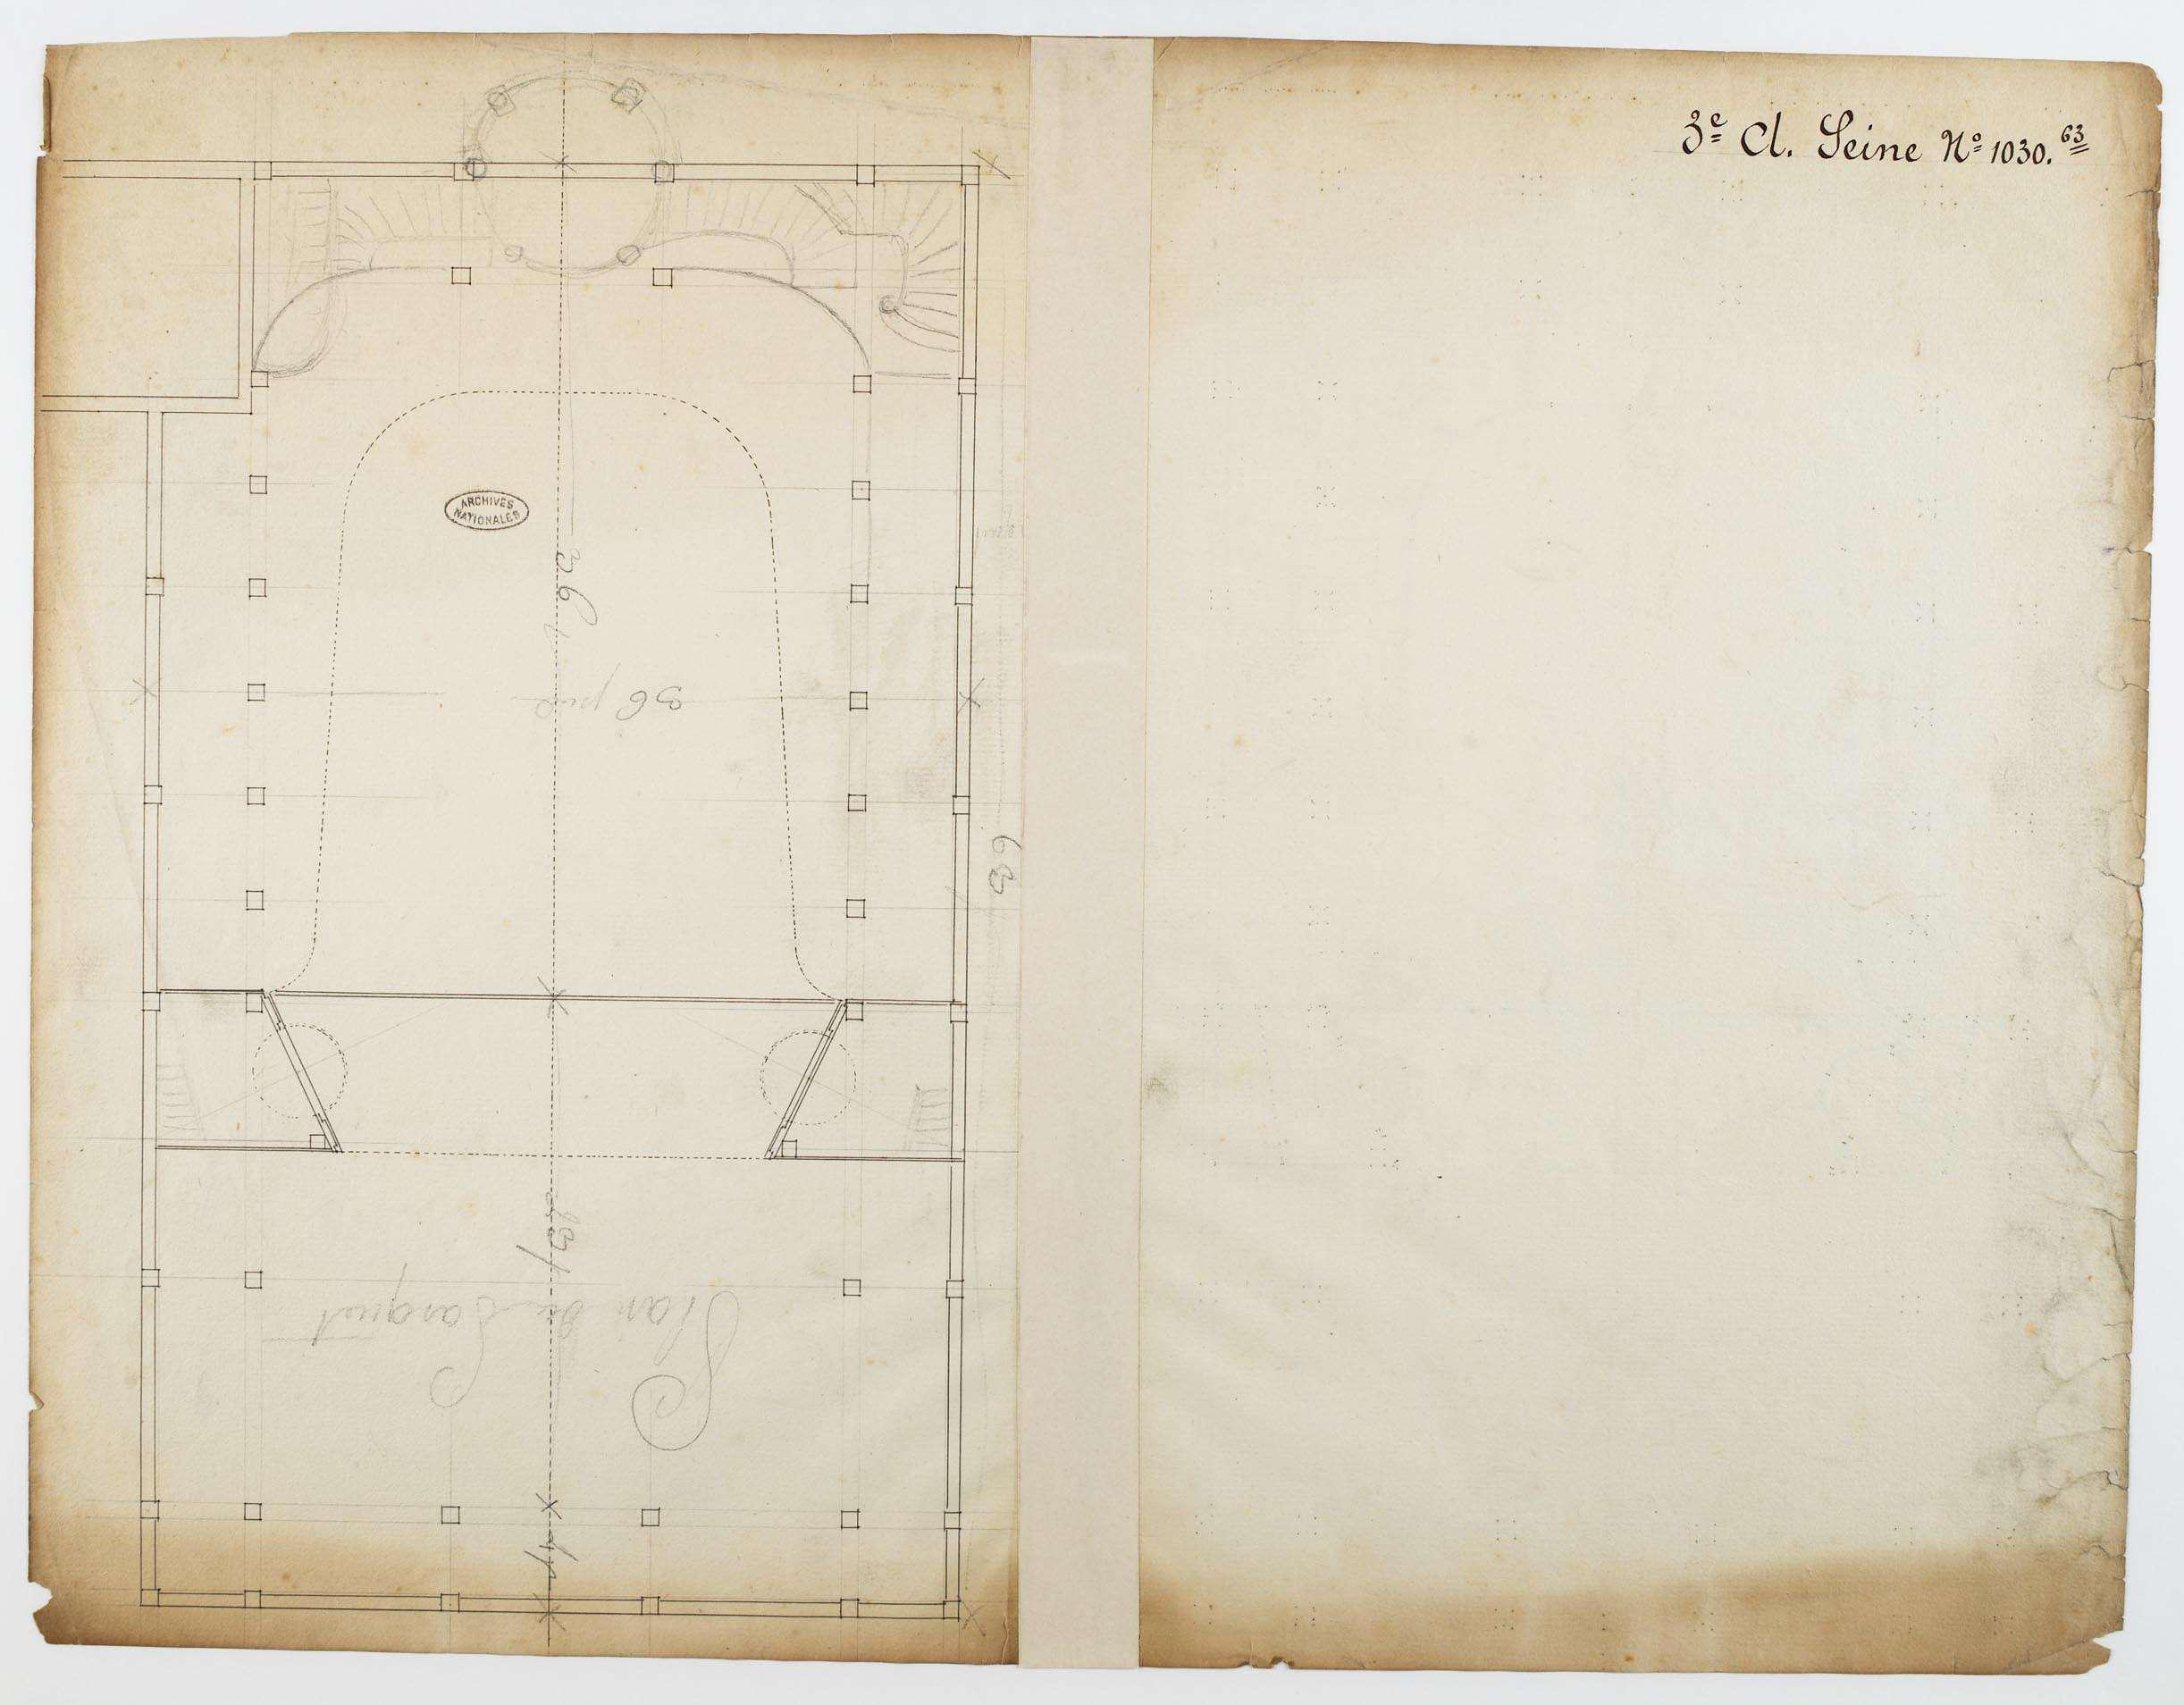 3e Cl. Seine No 1030. 63
ARCHIVES
NATIONALES
36
36
63
Plan du Parquet